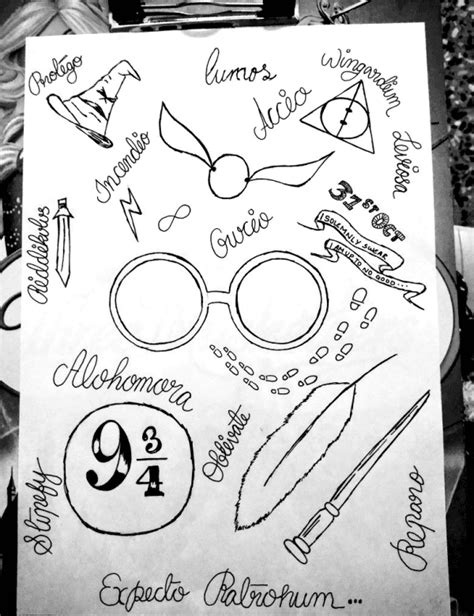 Protego
lumos
Wingardium
Leviosa
Accio
Incendio
31ST OCT
I SOLEMNLY SWEAR
I AM UP TO NO GOOD...
Riddikulus
Alohomora
9 3/4
Obliviate
Stupefy
Reparo
Expecto Patronum...